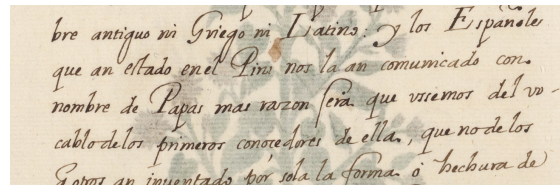 bre antiguo ni Griego ni Latino: y los Españoles
que an estado en el Piru nos la an comunicado con
nombre de Papas mas razon sera que vsemos del vo-
cablo de los primeros conocedores de ella, que no de los
q otros an inventado por sola la forma ó hechura de